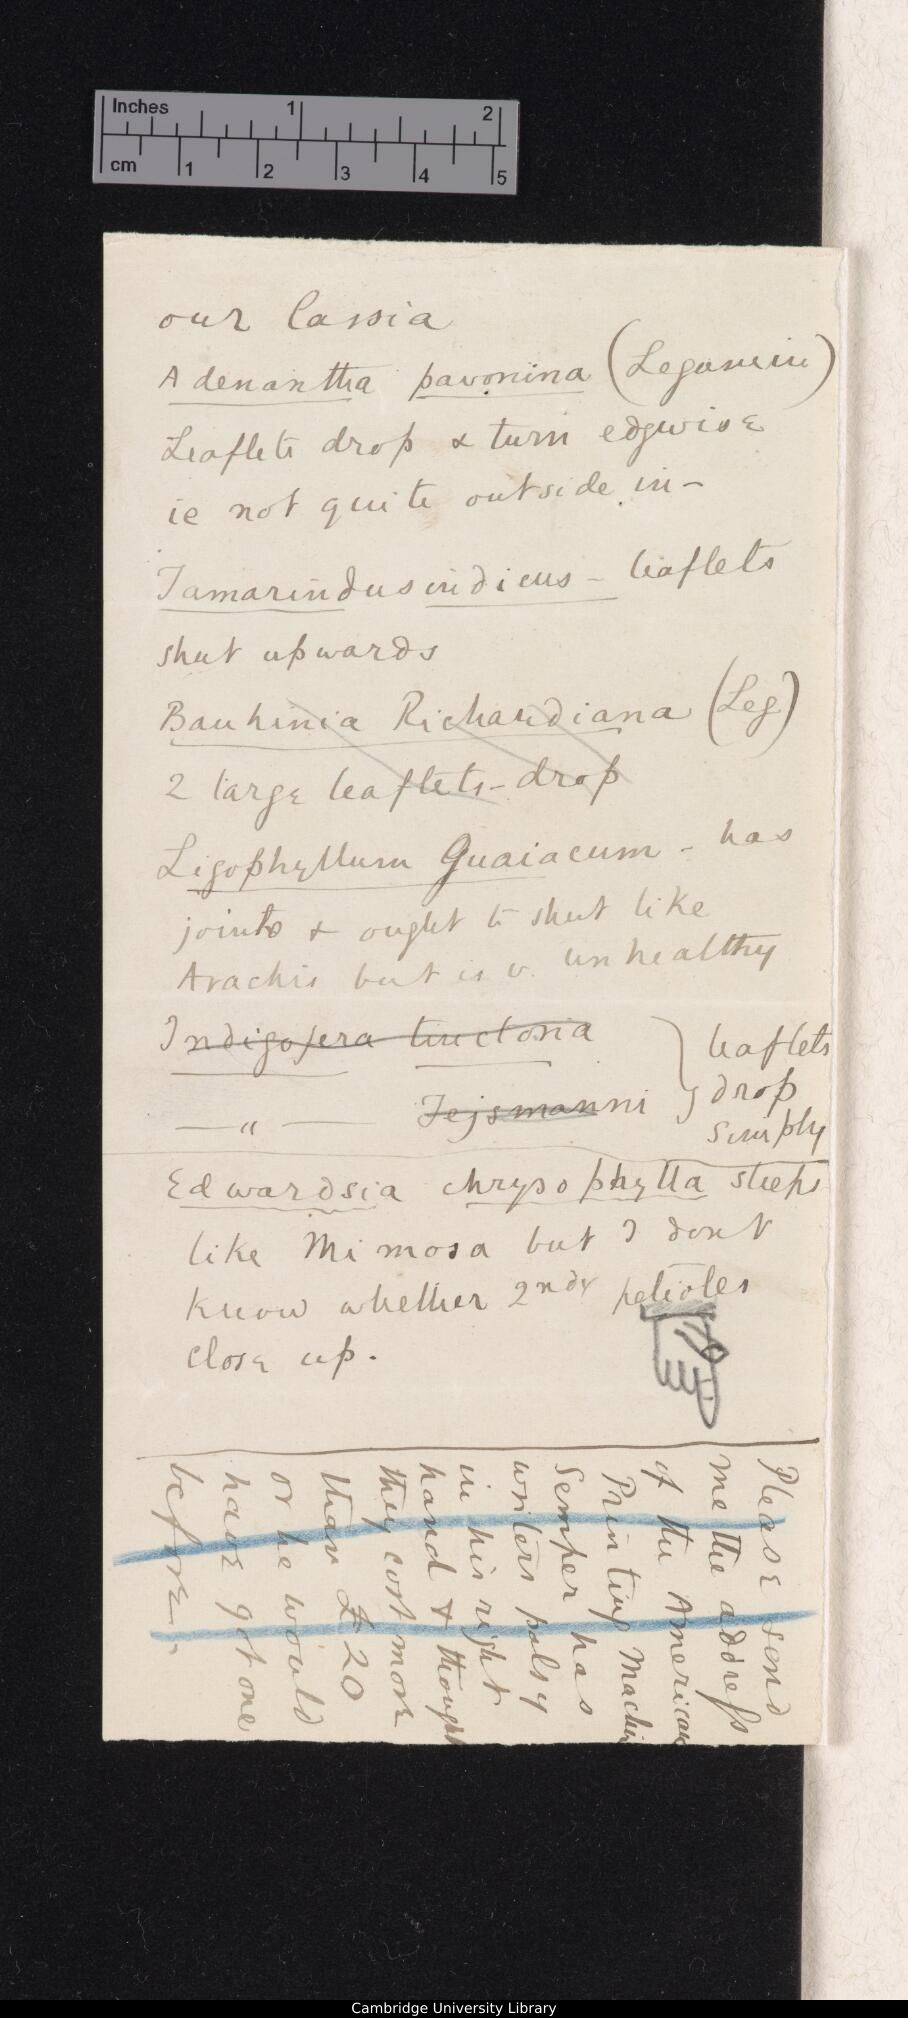 Inches 1 2
cm 1 2 3 4 5
our Cassia
Adenantha pavonina (Legumin)
Leaflets drop & turn edgwise
ie not quite outside in-
Tamarindus indicus - leaflets
shut upwards
Bauhinia Richardiana (Leg)
2 large leaflets - drop
Ligophyllum Guaiacum - has
joints & ought to shut like
Arachis but is v. unhealthy
Indigofera tinctoria } leaflets
—— " —— Tejsmanni } drop
simply
Edwardsia chrysophylla sleeps
like Mimosa but I dont
know whether 2ndy petioles
close up.
Please send
me the address
of the American
Printing Machin
Semper has
writers palsy
in his right
hand & though
they cost more
than £20
or he would
have got one
before.
Cambridge University Library